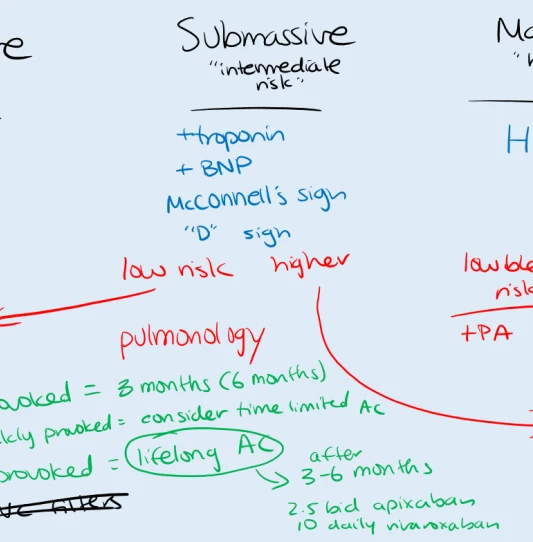 re
Submassive
Ma
"intermediate
risk"
"h
+troponin
H
+ BNP
McConnell's sign
"D" sign
low risk higher
low ble
risk
pulmonology
tPA
voked = 3 months (6 months)
kly provoked = consider time limited AC
provoked = lifelong AC
after
3-6 months
2.5 bid apixaban
10 daily rivaroxaban
IVC filters